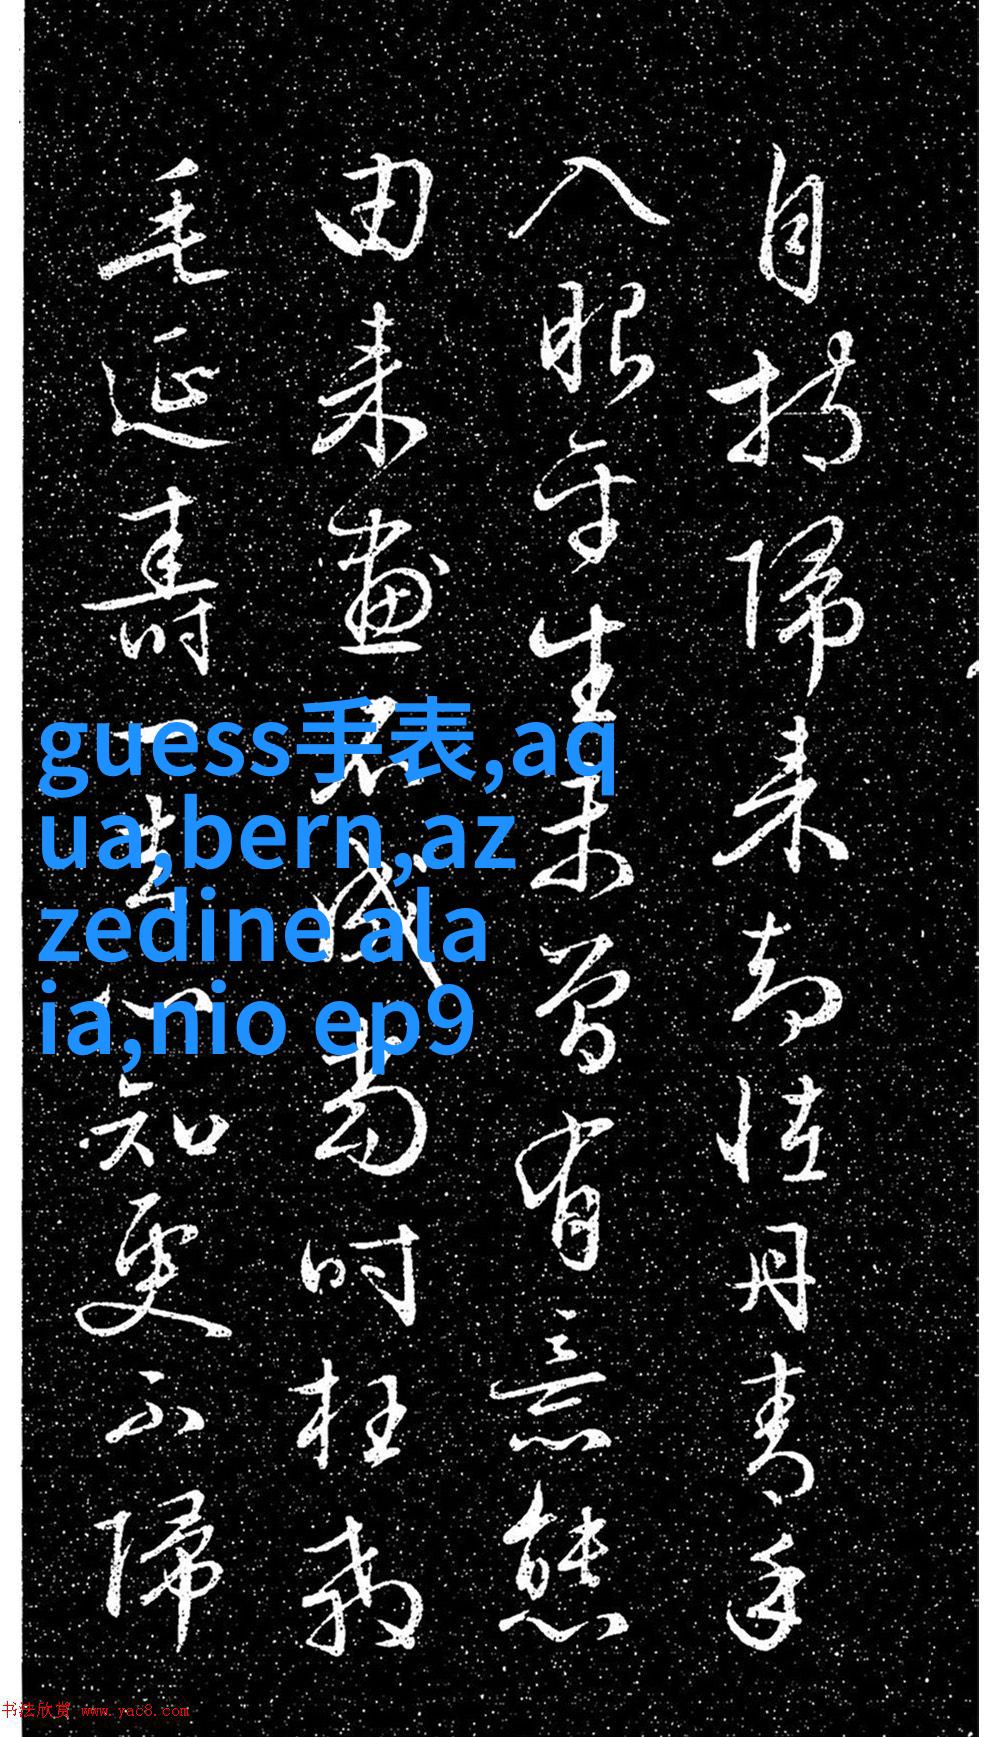 自持歸来却怪丹青手
入眼平生未曾有意態
由来畫成當时枉殺
毛延壽一去心知更不歸
guess手表,aq
ua,bern,az
zedine ala
ia,nio ep9
书法欣赏 www.yac8.com